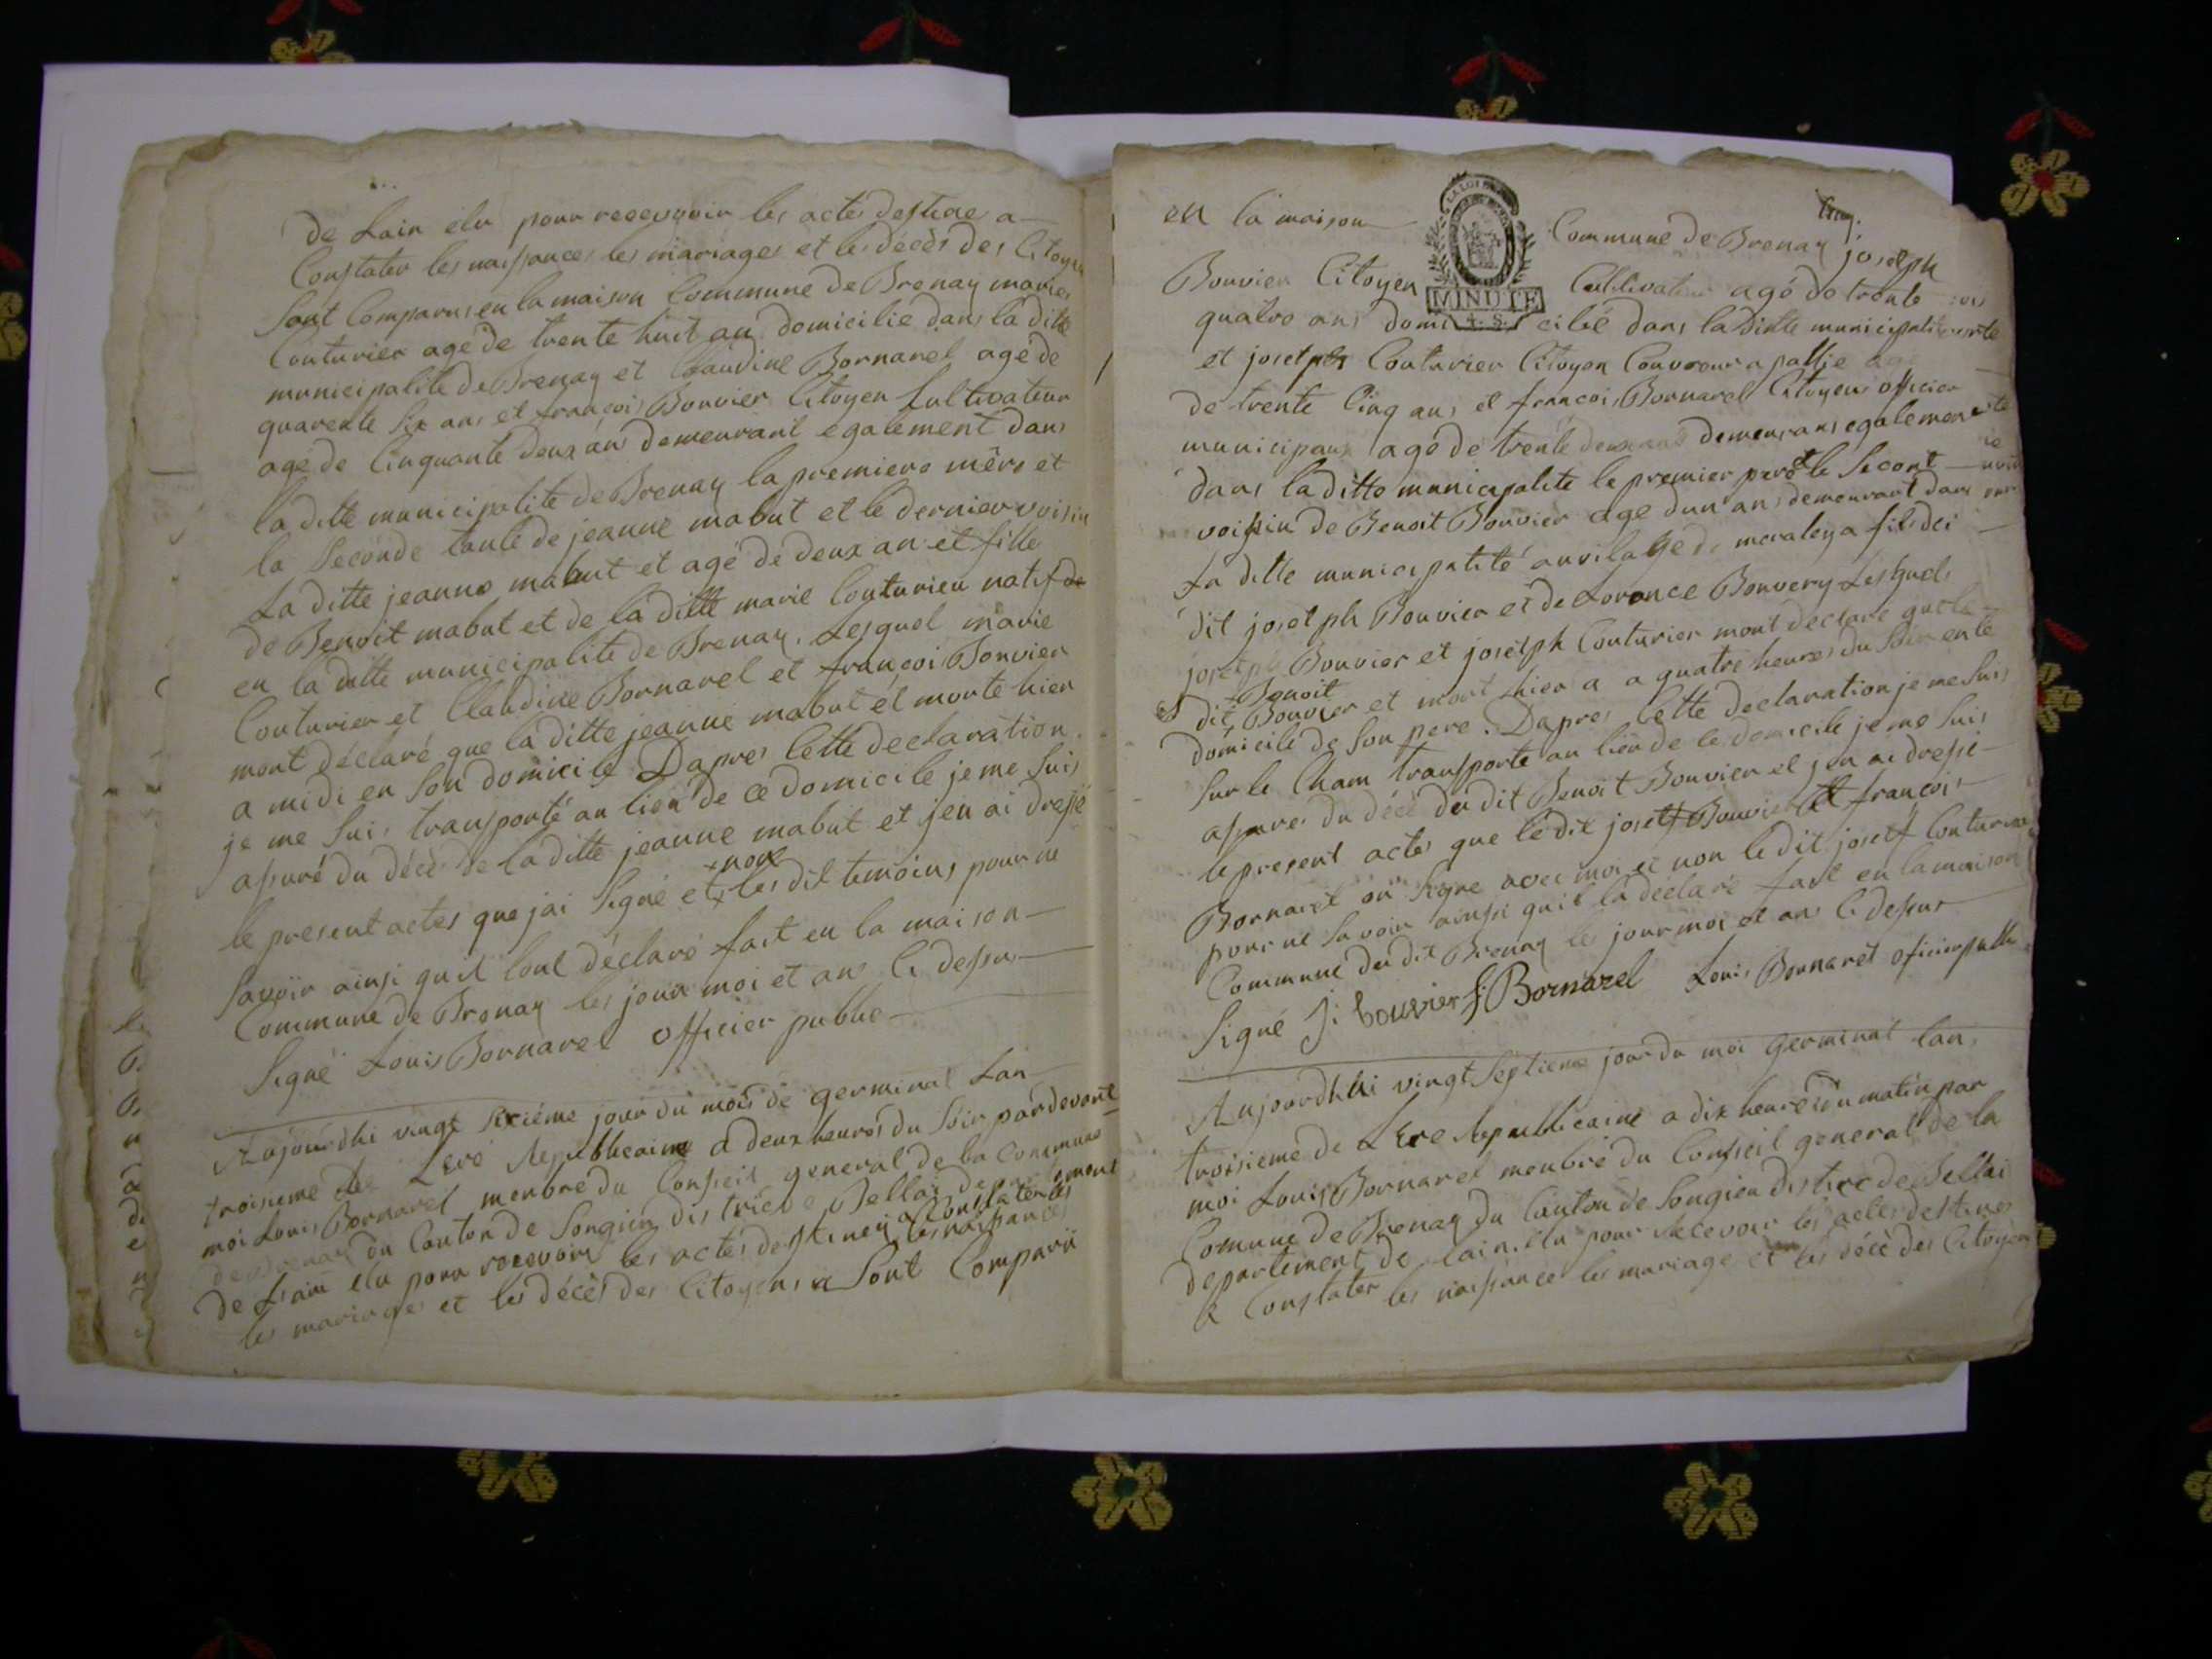 de Lain élu pour recevevoir les actes destiné a
Constater les naissances les mariages et les décès des Citoyen
Sont Comparus en la maison Commune de Brenay marie
Couturier agé de trente huit an domicilié dans la ditte
municipalité de Brenay et Claudine Bornarel agé de
quarente Six ans et françois Bouvier Citoyen Cultivateur
agé de Cinquante deux an demeurant également dans
la ditte municipalité de Brenay la premiere mère et
la Seconde tante de jeanne mabut et le dernier voisin
La ditte jeanne mabut et agé de deux an et fille
de Benoit mabut et de la ditte marie Couturier natif de
en la ditte municipalité de Brenay. Lesquel marie
Couturier et Claudine Bornarel et françois Bouvier
mont déclaré que la ditte jeanne mabut et morte hier
a midi en Son domicile Dapres Cette declaration
je me Suis transporté au lieu de ce domicile je me Suis
assuré du décè de la ditte jeanne mabut et jen ai dressé
le present actes que jai Signé et non les dit temoins pour ne
Savoir ainsi quil lont déclaré fait en la maison
Commune de Brenay les jour moi et an Ci dessus
Signé Louis Bornarel officier public
Aujourdhi vingt Sixiéme jour du mois de germinal Lan
troisieme de Leré Republicaine a deux heures du Soir pardevant
moi Louis Bornarel menbre du Conseil general de la Commune
de Brenay du Canton de Songieu districe Bellai departement
de Lain élu pour recevoir les actes destiney a Constater les naissances
les mariages et les décès des Citoyens Sont Comparu
en la maison Commune de Brenay josetph
Bouvier Citoyen Cultivateur agé de trente
quatre ans domicilié dans la ditte municipalité
et josetph Couturier Citoyen Couvreur a pallie
de trente Cinq ans et françois Bornarel Citoyen officier
municipaux agé de trente deux ans demeurans egalement
dans la ditte municipalité le premier per et le Secont
voissin de Benoit Bouvier age dun an demeurant dans
La ditte municipalité au vilage de meraleya fils dei
dit josetph Bouvier et de Lorance Bouvery Lesquels
josetph Bouvier et josetph Couturier mont declaré que le
dit Benoit Bouvier et mort hier a a quatre heures du Soir en le
domicile de Son pere. Dapres Cette declaration je me Suis
Sur le Cham transporté au lieu de ce domicile je me Suis
assurer du décè du dit Benoit Bouvier et jen ai dressé
le present actes que le dit josetf Bouvier et françois
Bornarel on Signe avec moi et non le dit josetf Couturier
pour ne Savoir ainssi quil la declaré fait en la maison
Commune du dit Brenay les jour moi et an Ci dessus
Signé Ji bouvier f. Bornarel Louis Bornarel oficier public
Aujourdhui vingt Septieme jour du moi germinal lan
troisieme de Lere Republicaine a dix heures du matin par
moi Louis Bornarel menbre du Conseil general de la
Comune de Brenay du Canton de Songieu districe de Bellai
departement de Lain élu pour Recevoir les actes destines
a Constater les naissance les mariage et les décè des Citoyens
MINUTE
4. S.
LA LOI